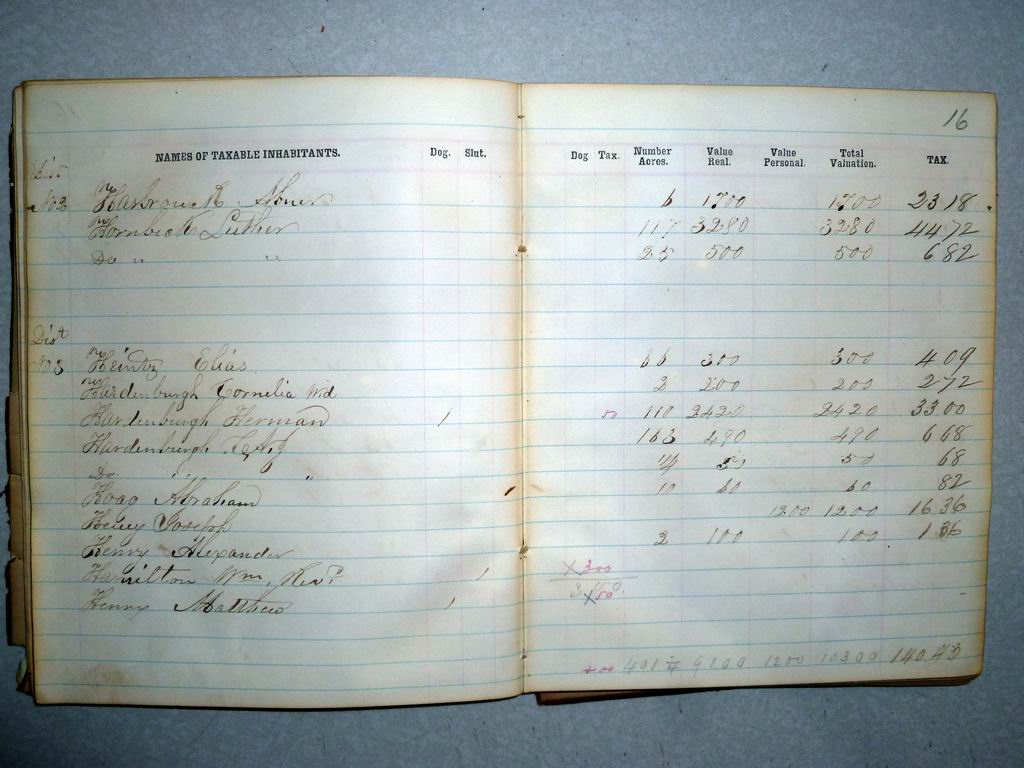 16
NAMES OF TAXABLE INHABITANTS. Dog. Slut. Dog Tax. Number Acres. Value Real. Value Personal. Total Valuation. TAX.
Dist
No 2 Hasbrouck Abner 6 1700 1700 23 18
Hornbeck Luther 117 3280 3280 44 72
Do " " 25 500 500 6 82
Dist
No 3 Heintz Elias 66 300 300 4 09
Hardenburgh Cornelia Wd 2 200 200 2 72
Hardenburgh Herman 1 50 110 2420 2420 33 00
Hardenburgh 163 490 490 6 68
Do " " 50 50 68
Hoag Abraham 10 60 60 82
Henry Joseph 1200 1200 16 36
Henry Alexander 2 100 100 1 36
Hamilton Wm, Revd 1 X 300
Henry Matthew 1 X 50
401 9100 1200 10300 140.43